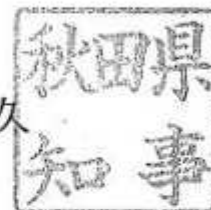 久
秋田県
知事